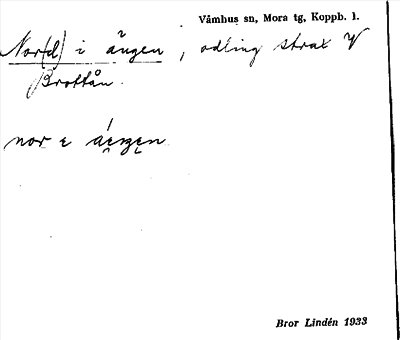 Våmhus sn, Mora tg, Koppb. l.
Nor(d) i ängen, odling strax V
Brottån.
nor ε
Bror Lindén 1933